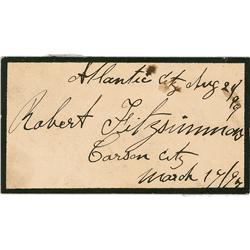 Atlantic City Aug 24/96
Robert Fitzsimmons
Carson City
March 17/97